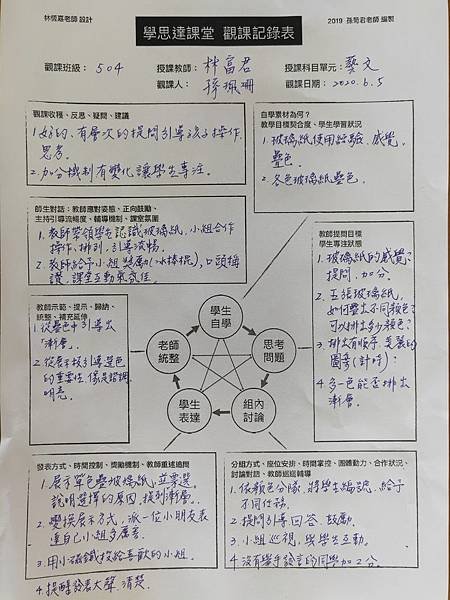 林恆嘉老師 設計
2019 孫菊君老師 編製
學思達課堂 觀課記錄表
觀課班級：504
授課教師：林富君
授課科目單元：藝文
觀課人：孫珮珊
觀課日期：2020.6.5
觀課收穫、反思、疑問、建議
1.好的、有層次的提問引導孩子操作、
思考。
2.加分機制有變化讓學生專注。
自學素材為何？
教學目標契合度、學生學習狀況
1.玻璃紙使用經驗、感覺、
疊色。
2.各色玻璃紙疊色。
師生對話：教師應對姿態、正向鼓勵、
主持引導流暢度、輔導機制、課室氛圍
1.教師帶領學生認識玻璃紙，小組合作
操作、排列，引導流暢。
2.教師給予小組獎勵(冰棒棍)，口頭稱
讚，課堂互動氣氛佳。
教師提問目標
學生專注狀態
1.玻璃紙的感覺？
提問、加分。
2.五張玻璃紙，
如何疊出不同顏色？
可以排出多少顏色？
3.排出有順序、美裝的
圖卡(計時)
4.多一色能否排出
漸層。
教師示範、提示、歸納、
統整、補充延伸
1.從疊色中引導出
「漸層」。
2.從展示板引導選色
的重要性，像是諧調、
明亮。
學生
自學
思考
問題
組內
討論
學生
表達
老師
統整
發表方式、時間控制、獎勵機制、教師重述追問
1.展示單色疊玻璃紙，並票選，
說明選擇的原因，提到漸層。
2.變換展示方式，派一位小朋友表
達自己小組多厲害。
3.用小磁鐵投給喜歡的小組。
4.提醒發表大聲、清楚。
分組方式、座位安排、時間掌控、團體動力、合作狀況、
討論對話、教師巡視輔導
1.依顏色分隊，將學生編號，給予
不同任務。
2.提問引導回答、鼓勵。
3.小組巡視，與學生互動。
4.沒有舉手發言的同學加2分。